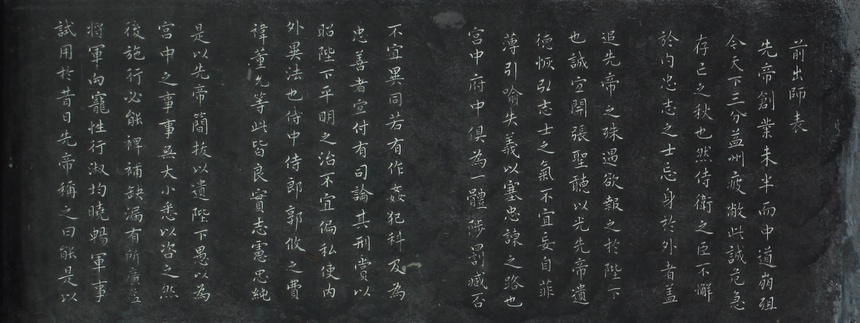 前出師表
先帝創業未半而中道崩殂
今天下三分益州疲敝此誠危急
存亡之秋也然侍衛之臣不懈
於內忠志之士忘身於外者蓋
追先帝之殊遇欲報之於陛下
也誠宜開張聖聽以光先帝遺
德恢弘志士之氣不宜妄自菲
薄引喻失義以塞忠諫之路也
宮中府中俱為一體陟罰臧否
不宜異同若有作姦犯科及為
忠善者宜付有司論其刑賞以
昭陛下平明之治不宜偏私使內
外異法也侍中侍郎郭攸之費
禕董允等此皆良實志慮忠純
是以先帝簡拔以遺陛下愚以為
宮中之事事無大小悉以咨之然
後施行必能裨補缺漏有所廣益
將軍向寵性行淑均曉暢軍事
試用於昔日先帝稱之曰能是以